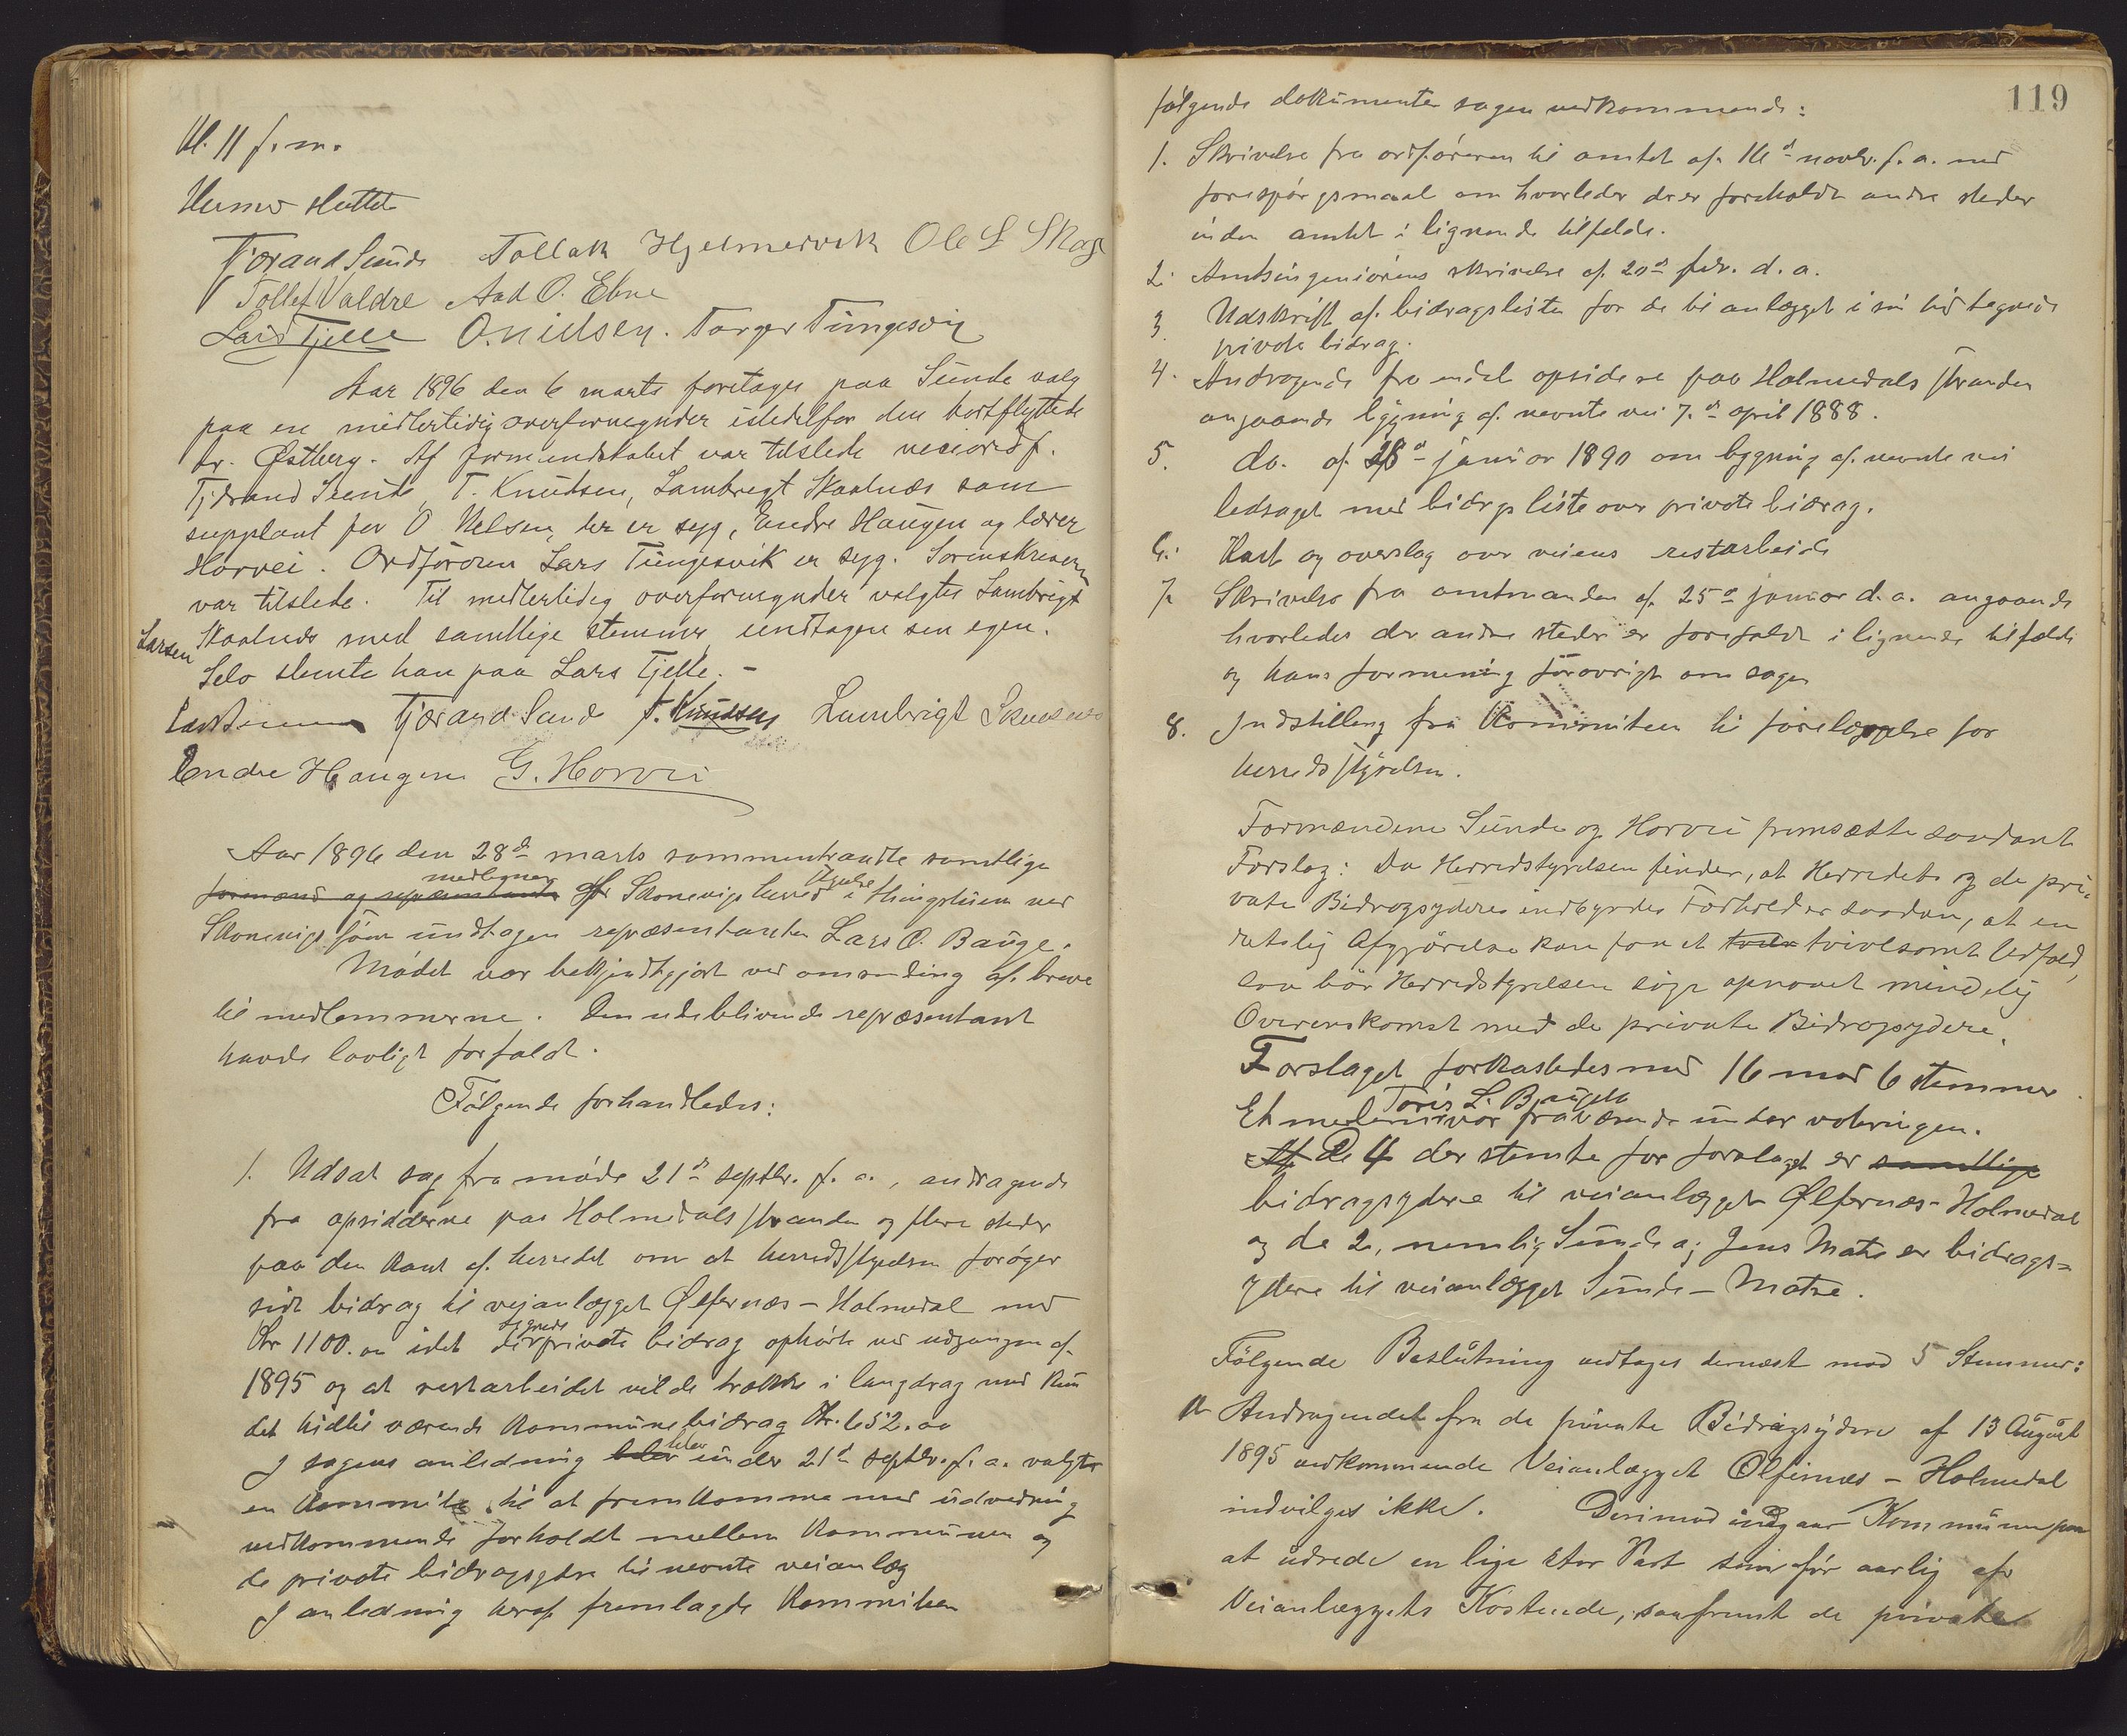 Kl. 11 f.m.
Hermed sluttet
Tjærand Sunde Tollak Hjelmervik Ole L Skage
Tollef Valdre Aad O. Ebne
Lars Tjelle O. Nielsen. Torger Tungesvig
Aar 1896 den 6 marts foretages paa Sunde valg
paa en midlertidig overformynder istedetfor den bortflyttede
hr. Østberg. Af formendskabet var tilstede viceordf.
Tjerand Sunde, T. Knudsen, Lambregt Skaalnæs som
supplant for O Nelsen, der er syg, Endre Haugen og lærer
Horvei. Ordføreren Lars Tungesvik er syg. Sorenskriveren
var tilstede. Til midlertidig overformynder valgtes Lambrigt
Larsen Skaalnæs med samtlige stemmer undtagen sin egen.
Selv stemte han paa Lars Tjelle. -
Tjærand Sunde T. Knudsen Lambrigt Skaalnæs
Endre Haugen G. Horvei
Aar 1896 den 28de marts sammentraadte samtlige
medlemmer styrelse
formænd og repræsentanter af Skonevigs herred i thingstuen ved
Skonevigs sjøen undtagen repræsentanten Lars O. Bauge.
Mødet var bekjendtgjort ved omsending af breve
til medlemmerne. Den udeblivende repræsentant
havde lovligt forfald.
Følgende forhandledes:
1. Udsat sag fra møde 21de septbr. f. a., andragende
fra opsidderne paa Holmedalsstranden og flere steder
paa den kant af herredet om at herredsstyrelsen forøger
sidt bidrag til veianlægget Ølfernæs - Holmedal med
tegnede
Kr 1100.00 idet de private bidrag ophørte ved udgangen af
1895 og at restarbeidet vilde trække i langdrag med kun
det hidtil værende kommunebidrag Kr. 652.00
blev
I sagens anledning blev under 21de septbr. f. a. valgte
en Kommite til at fremkomme med udredning
vedkommende forholdt mellem Kommunen og
de private bidragsydere til nevnte veianlæg
I anledning heraf fremlagde Kommiteen
119
følgende dokumenter sagen vedkommende:
1. Skrivelse fra ordføreren til amtet af 16de novbr. f. a. med
forespørgsmaal om hvorledes der er forholdt andre steder
inden amtet i lignende tilfælde.
2. Amtsingeniørens skrivelse af 20de febr. d. a.
3. Udskrift af bidragslisten for de til anlægget i sin tid tegnede
private bidrag.
4. Andragende fra endel opsidere paa Holmedalsstranden
angaaende bygning af nevnte vei 7de april 1888.
5. do. af 28de januar 1890 om bygning af nevnte vei
ledsaget med bidragsliste over private bidrag.
6. Kart og overslag over veiens restarbeide
7. Skrivelse fra amtmanden af 25de januar d. a. angaaende
hvorledes der andre steder er forefaldt i lignende tilfælde
og hans formening forøvrigt om sagen
8. Indstilling fra Kommiteen til forelæggelse for
herredsstyrelsen.
Formændene Sunde og Horvei fremsætte saadant
Forslag: Da Herredstyrelsen finder, at Herredets og de pri-
vate Bidragsyderes indbyrdes Forhold er saadan, at en
retslig Afgjørelse kan faa et tvivlsomt Udfald,
saa bør Herredstyrelsen søge opnaaet mindelig
Overenskomst med de private Bidragsydere.
Forslaget forkastedes med 16 mod 6 stemmer.
Toris L. Bjørgen
Et medlem var fraværende under voteringen.
Af De 4 der stemte for forslaget er samtlige
bidragsydere til veianlægget Ølfernæs - Holmedal
og de 2, nemlig Sunde og Jens Matre er bidrags=
ydere til veianlægget Sunde - Matre.
Følgende Beslutning vedtages dernæst mod 5 Stemmer:
Andragendet fra de private Bidragsydere af 13 August
1895 vedkommende Veianlægget Ølfernæs - Holmedal
indvilges ikke. Derimod indgaar Kommunen paa
at udrede en lige stor Part som før aarlig af
Veianlæggets Kostende, saafremt de private